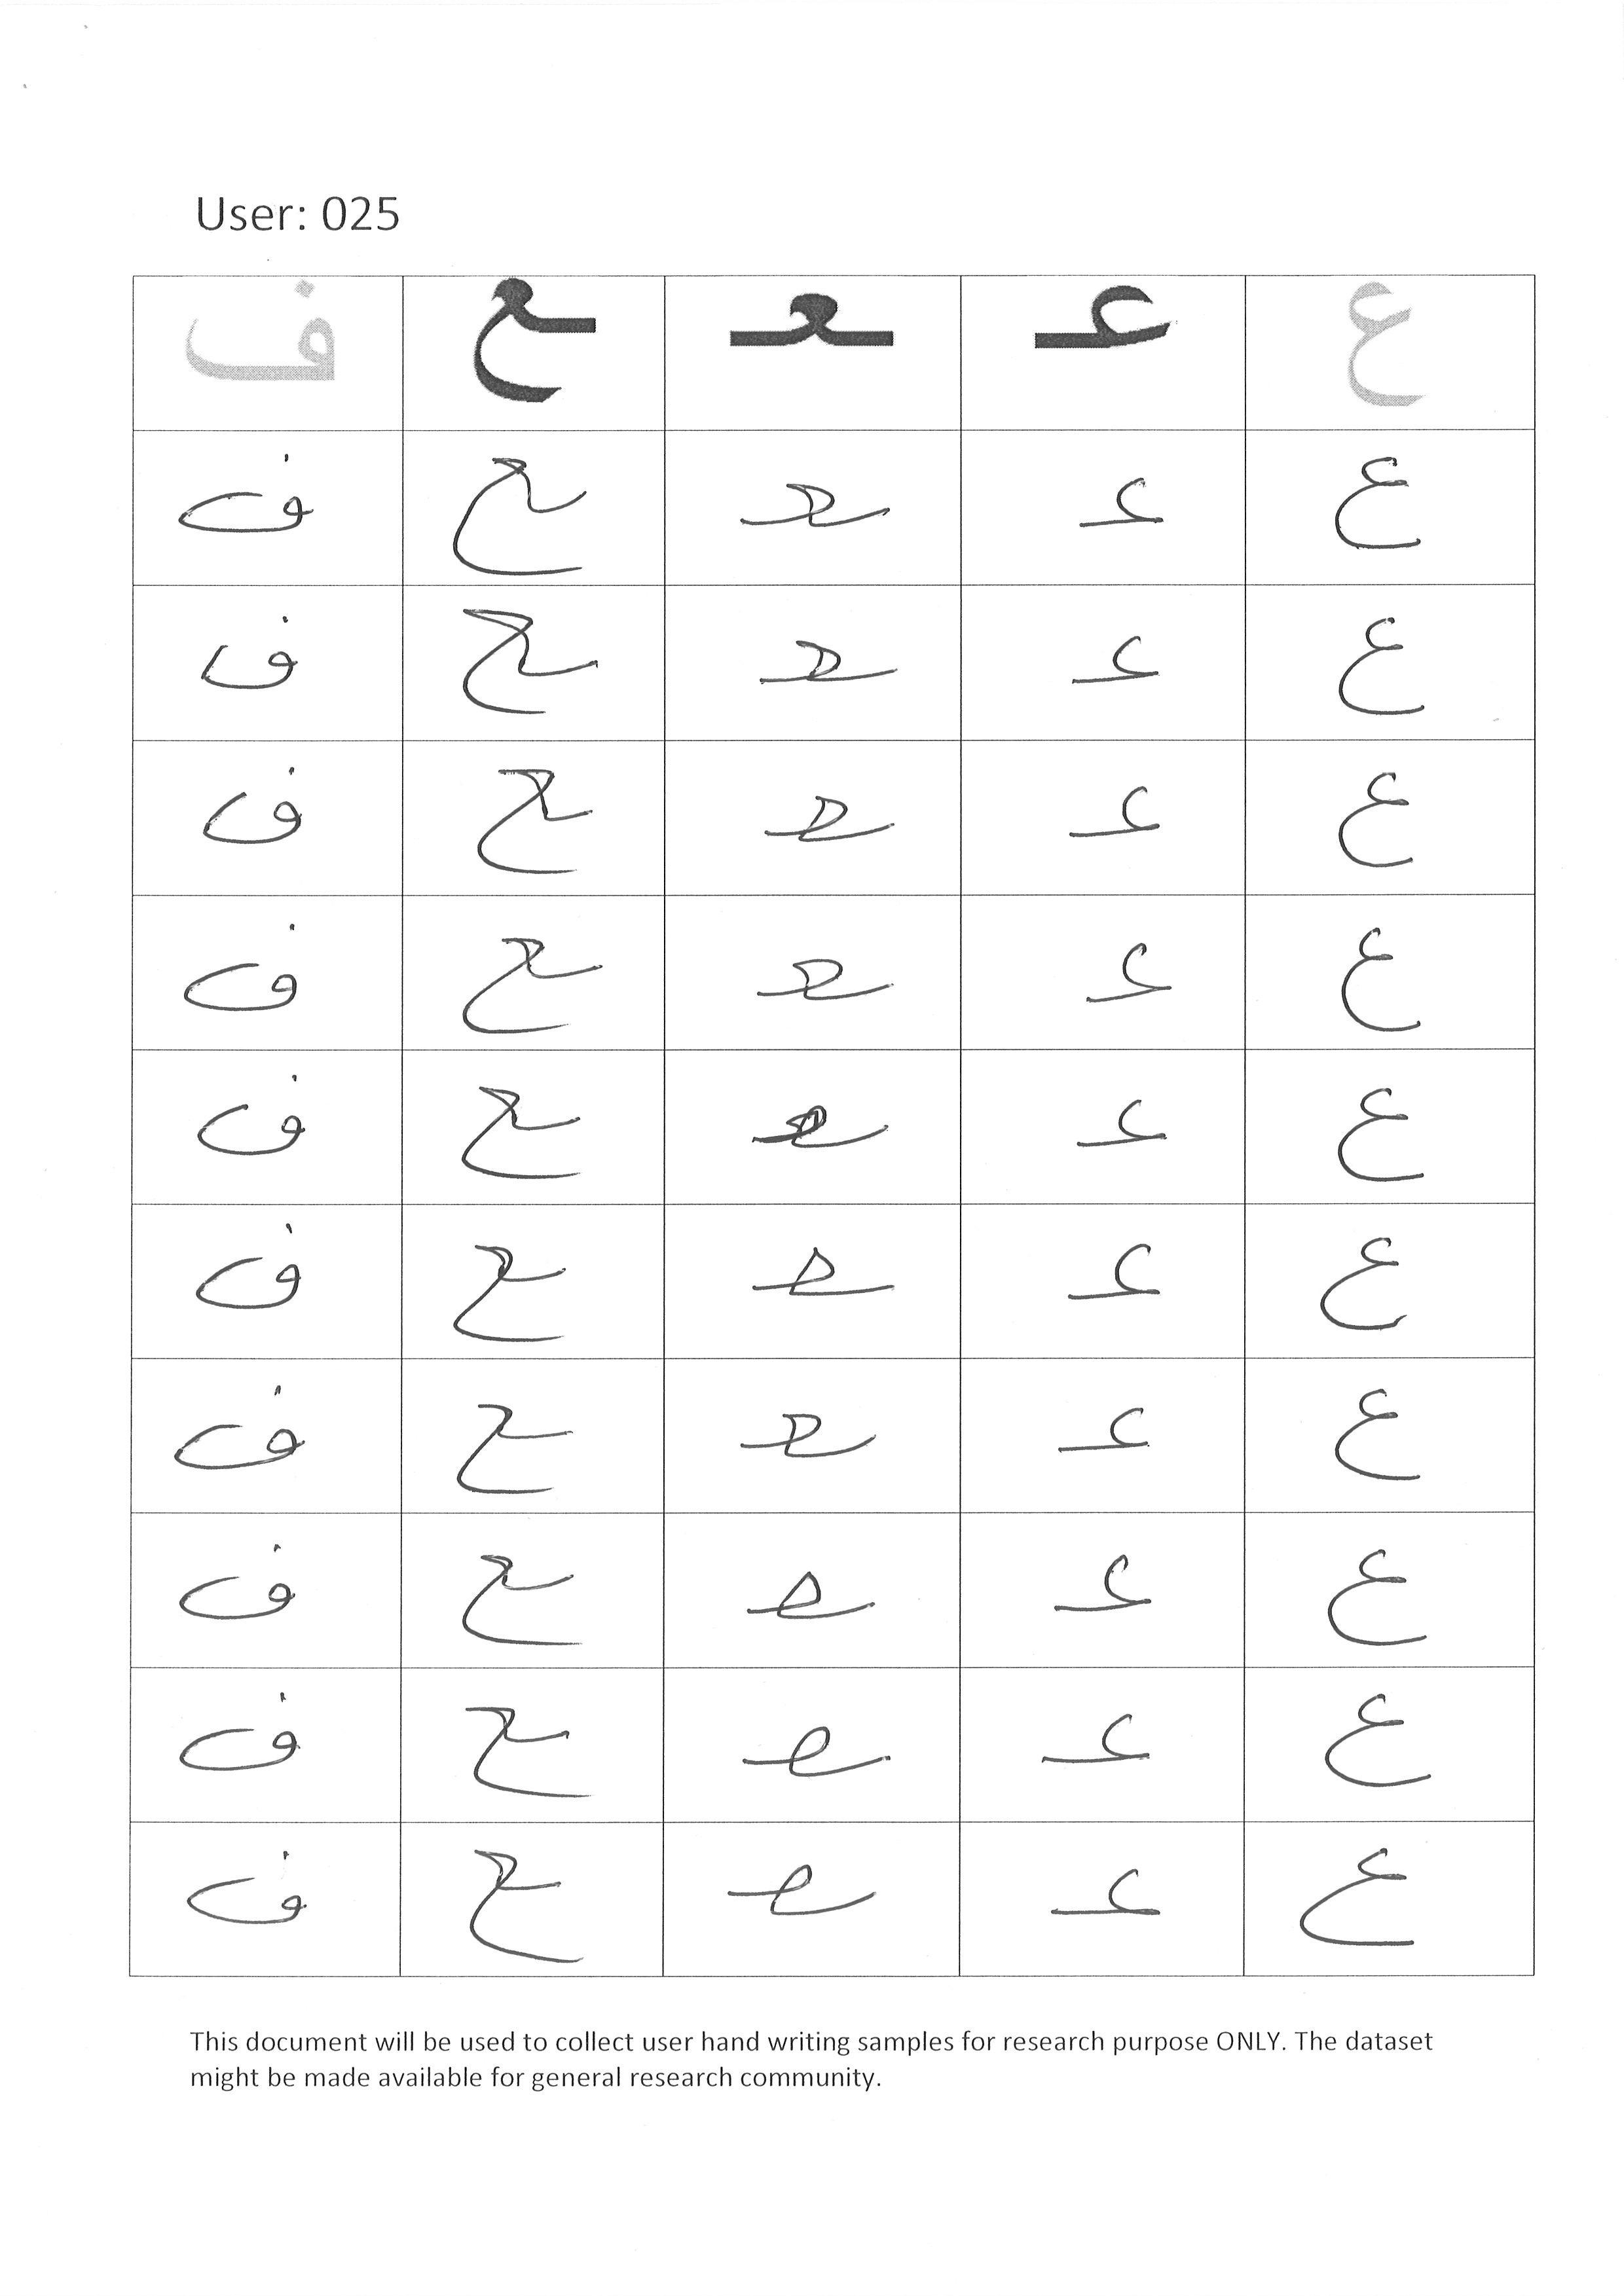 User: 025
ع عـ ـعـ ـع ف
ع عـ ـعـ ـع ف
ع عـ ـعـ ـع ف
ع عـ ـعـ ـع ف
ع عـ ـعـ ـع ف
ع عـ ـعـ ـع ف
ع عـ ـعـ ـع ف
ع عـ ـعـ ـع ف
ع عـ ـعـ ـع ف
ع عـ ـعـ ـع ف
ع عـ ـعـ ـع ف
This document will be used to collect user hand writing samples for research purpose ONLY. The dataset
might be made available for general research community.